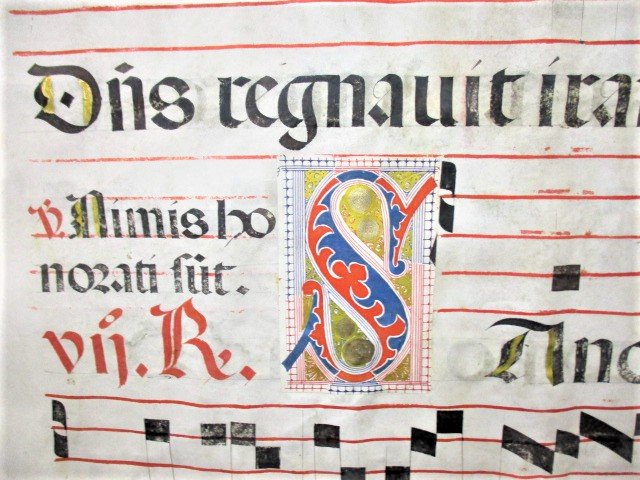 Dñs regnauit ira
℣ Nimis ho
norati sũt.
vij. R.
S Anc